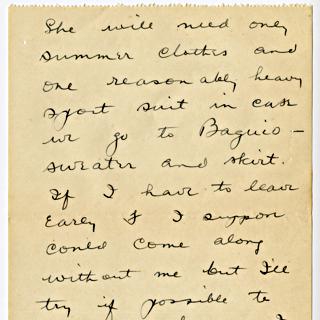 She will need only
summer clothes and
one reasonably heavy
sport suit in case
we go to Baguio —
sweater and skirt.
If I have to leave
Early & I suppose
could come along
without me but I'll
try if possible to